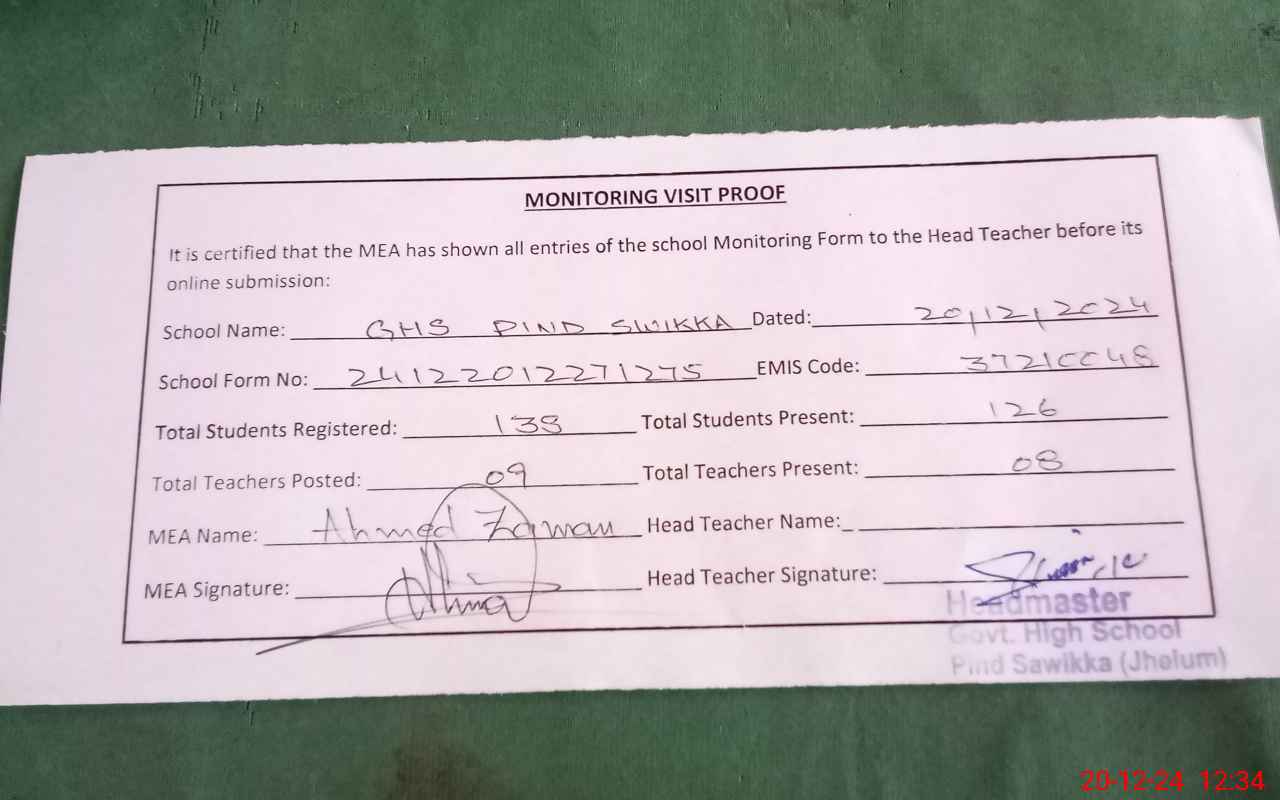 MONITORING VISIT PROOF
It is certified that the MEA has shown all entries of the school Monitoring Form to the Head Teacher before its
online submission:
School Name: GHS PIND SWIKKA Dated: 20,12,2024
School Form No: 24122012271275 EMIS Code: 37210048
Total Students Registered: 138 Total Students Present: 126
Total Teachers Posted: 09 Total Teachers Present: 08
MEA Name: Ahmed Zaman Head Teacher Name:_
MEA Signature: Head Teacher Signature:
Headmaster
Govt. High School
Pind Sawikka (Jhelum)
20-12-24 12:34